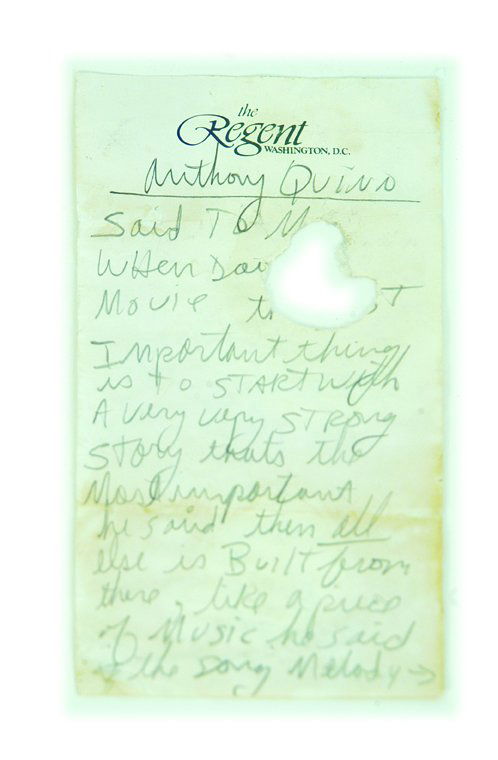 the
Regent
WASHINGTON, D.C.
Anthony Quinn
Said To M
WHen
Movie
Important thing
is to START with
A very very STRONG
STory thats the
Most important
he said then all
else is Built from
there, like a piece
of Music he said
the song Melody →